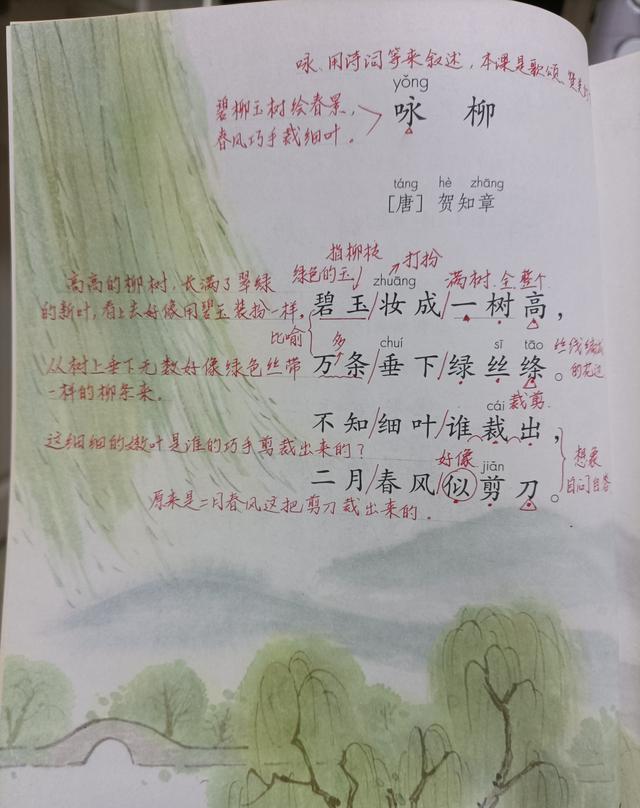 咏、用诗词等来叙述，本课是歌颂、赞美
yǒng
碧柳玉树绘春景，
春风巧手裁细叶。
咏 柳
táng hè zhāng
[唐] 贺知章
指柳枝
绿色的玉
打扮
满树.全.整个
高高的柳树，长满了翠绿
的新叶，看上去好像用碧玉装扮一样。
zhuāng
碧玉/妆成/一树高，
比喻
多
chuí sī tāo
从树上垂下无数好像绿色丝带
一样的柳条来。
万条/垂下/绿丝绦。
丝线编成
的花边
cái
裁剪
不知/细叶/谁裁出，
这细细的嫩叶是谁的巧手剪裁出来的？
想象
自问自答
好像
jiǎn
二月/春风/似剪刀。
原来是二月春风这把剪刀裁出来的.